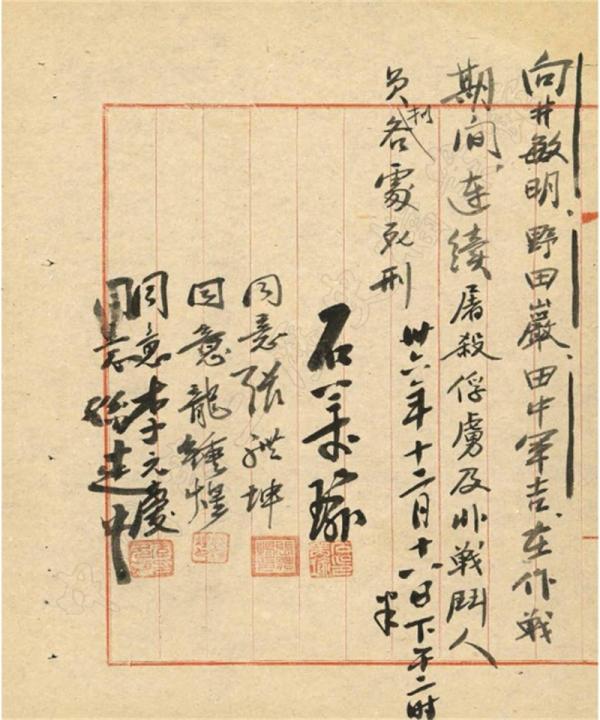 向井敏明、野田巖、田中軍吉、在作戰
期间、連續屠殺俘虜及非戰鬥人
員各處死刑
卅六年十二月十六日下午二时
半
石美瑜
同意 張體坤
同意 龍鍾煌
同意 李元慶
同意 徐建中